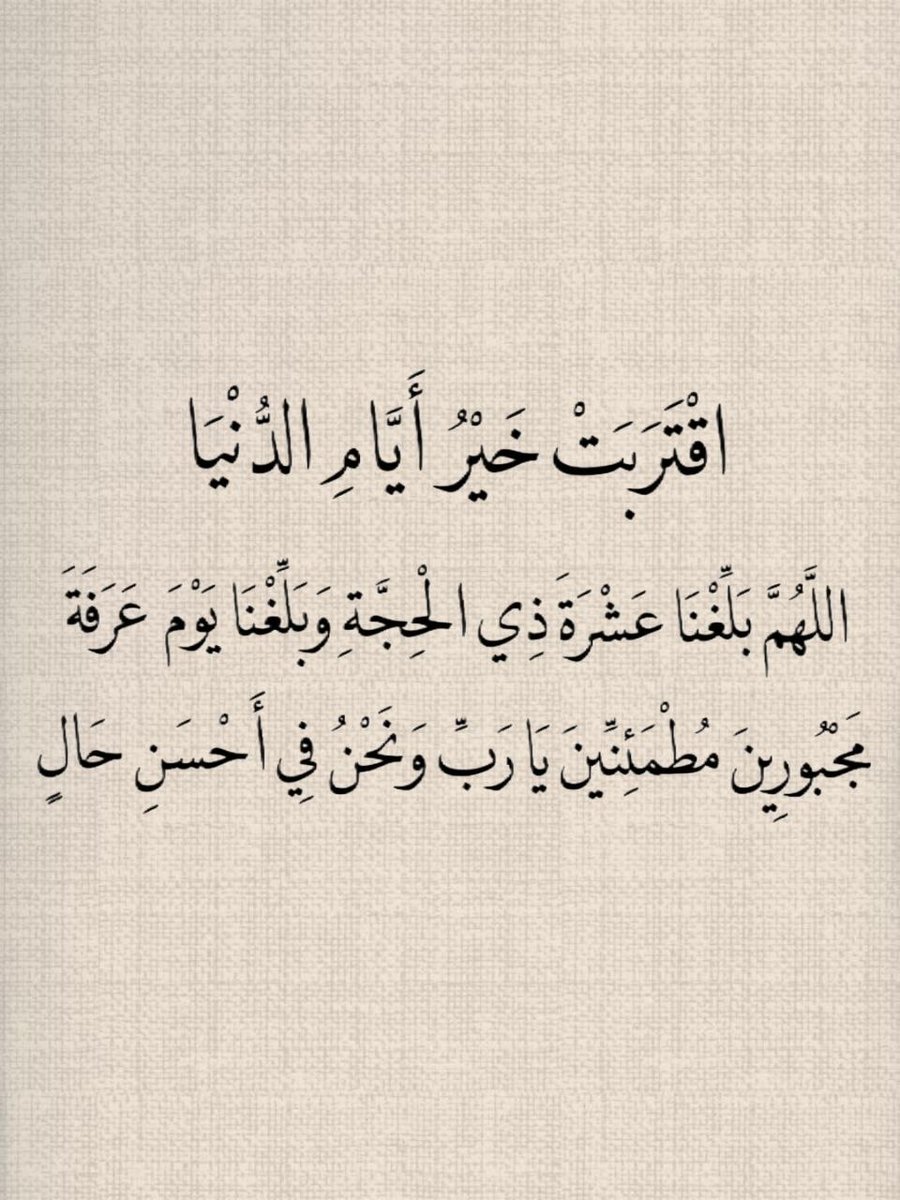 اقْتَرَبَتْ خَيْرُ أَيَّامِ الدُّنْيَا
اللَّهُمَّ بَلِّغْنَا عَشْرَةَ ذِي الْحِجَّةِ وَبَلِّغْنَا يَوْمَ عَرَفَةَ
مَجْبُورِينَ مُطْمَئِنِّينَ يَا رَبِّ وَنَحْنُ فِي أَحْسَنِ حَالٍ